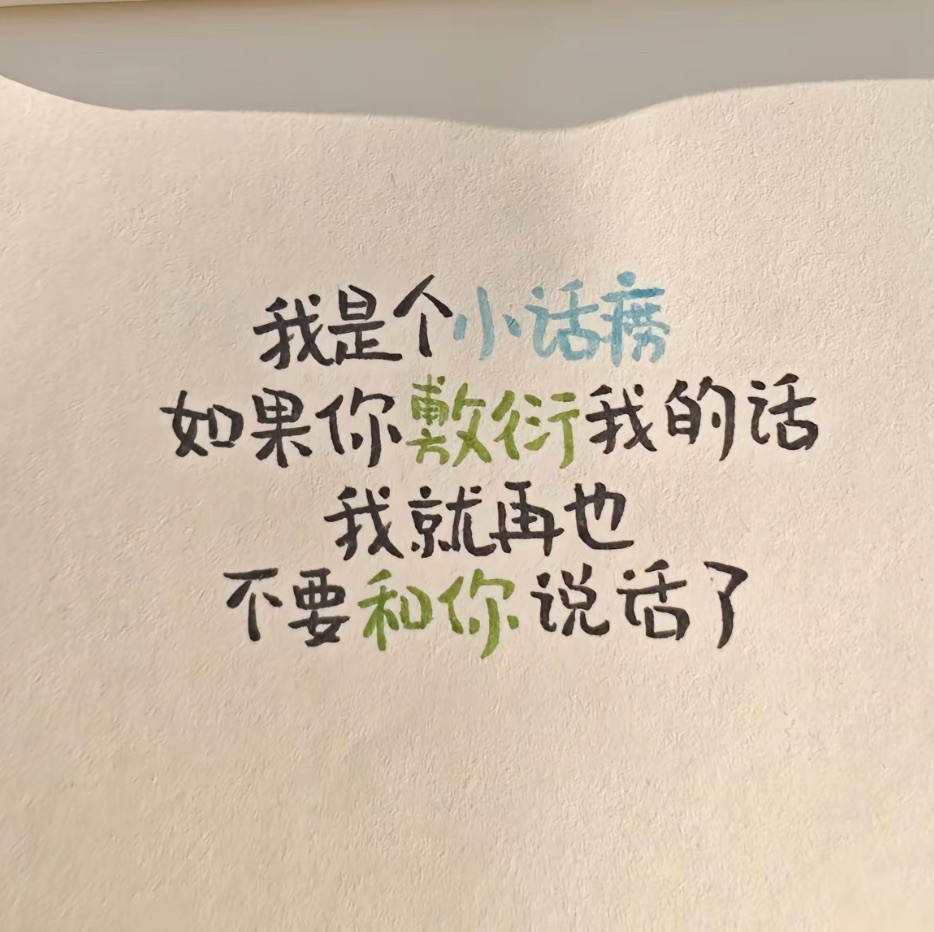 我是个小话痨
如果你敷衍我的话
我就再也
不要和你说话了